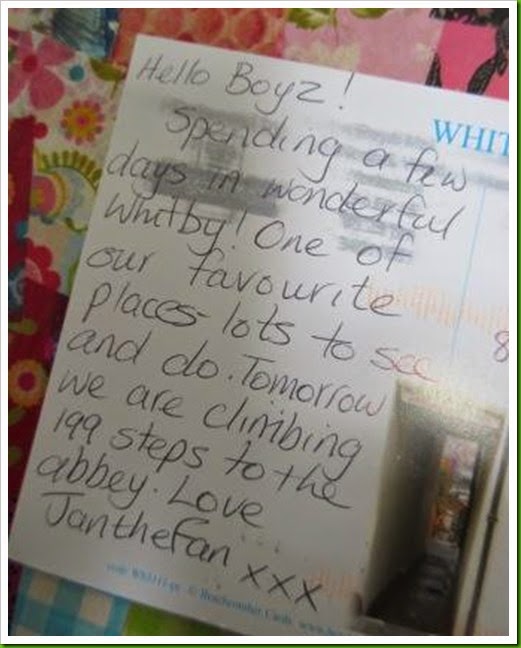 Hello Boyz!
Spending a few
days in wonderful
Whitby! One of
our favourite
places lots to see
and do. Tomorrow
we are climbing
199 steps to the
abbey. Love
Janthefan xxx
WHIT
8
© Beachcomber Cards